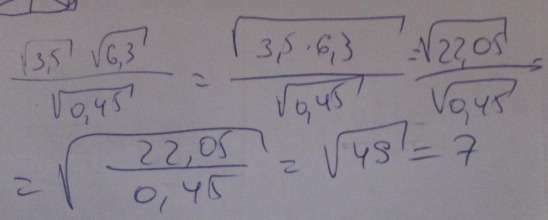 √3,5 √6,3 / √0,45 = √3,5 · 6,3 / √0,45 = √22,05 / √0,45 =
= √22,05 / 0,45 = √49 = 7